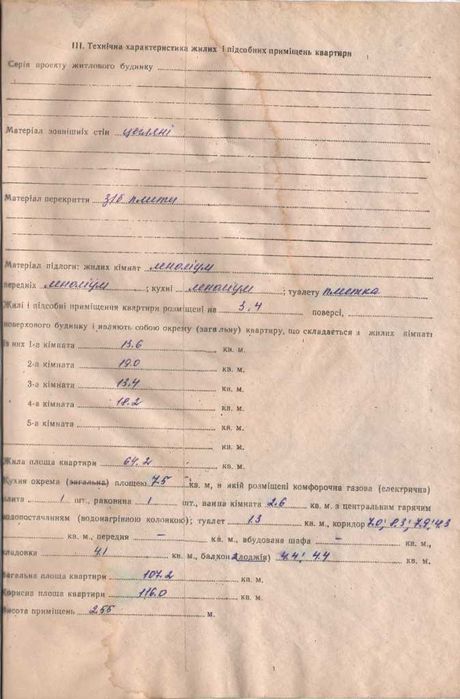 III. Технічна характеристика жилих і підсобних приміщень квартири
Серія проєкту житлового будинку
Матеріал зовнішніх стін цегляні
Матеріал перекриття з/б плити
Матеріал підлоги: жилих кімнат леноліум
передніх леноліум ; кухні леноліум ; туалету плитка
Жилі і підсобні приміщення квартири розміщені на 3,4 поверсі,
поверхового будинку і являють собою окрему (загальну) квартиру, що складається з жилих кімнат
Із них 1-а кімната 13.6 кв. м.
2-а кімната 19.0 кв. м.
3-а кімната 13.4 кв. м.
4-а кімната 18.2 кв. м.
5-а кімната кв. м.
кв. м.
Жила площа квартири 64.2 кв. м.
Кухня окрема (загальна) площею 7.5 кв. м, в якій розміщені комфорочна газова (електрична)
плита 1 шт., раковина 1 шт., ванна кімната 2.6 кв. м з центральним гарячим
водопостачанням (водонагрінною колонкою); туалет 1.3 кв. м., коридор 7.0; 8.3; 7.9; 4.3
кв. м., передня – кв. м., вбудована шафа – кв. м.,
кладовка 4.1 кв. м., балкон 2 (лоджія) 4.4; 4.4 кв. м.
Загальна площа квартири 107.2 кв. м.
Корисна площа квартири 116.0 кв. м.
Висота приміщень 2.55 м.